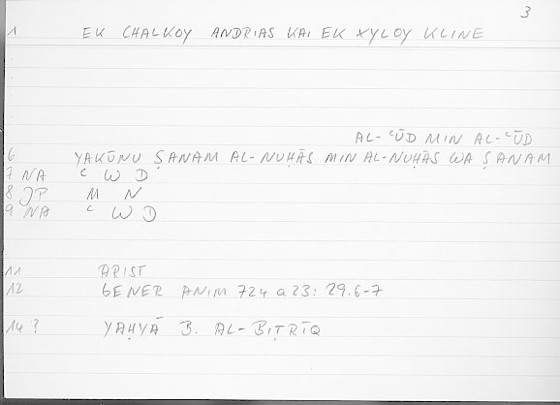 3
1 EK CHALKOY ANDRIAS KAI EK XYLOY KLINE
AL-ʿŪD MIN AL-ʿŪD
6 YAKŪNU ṢANAM AL-NUḤĀS MIN AL-NUḤĀS WA ṢANAM
7 NA ʿ W D
8 JP M N
9 NA ʿ W D
11 ARIST
12 GENER ANIM 724 a 23: 29.6-7
14 ? YAḤYĀ B. AL-BIṬRĪQ